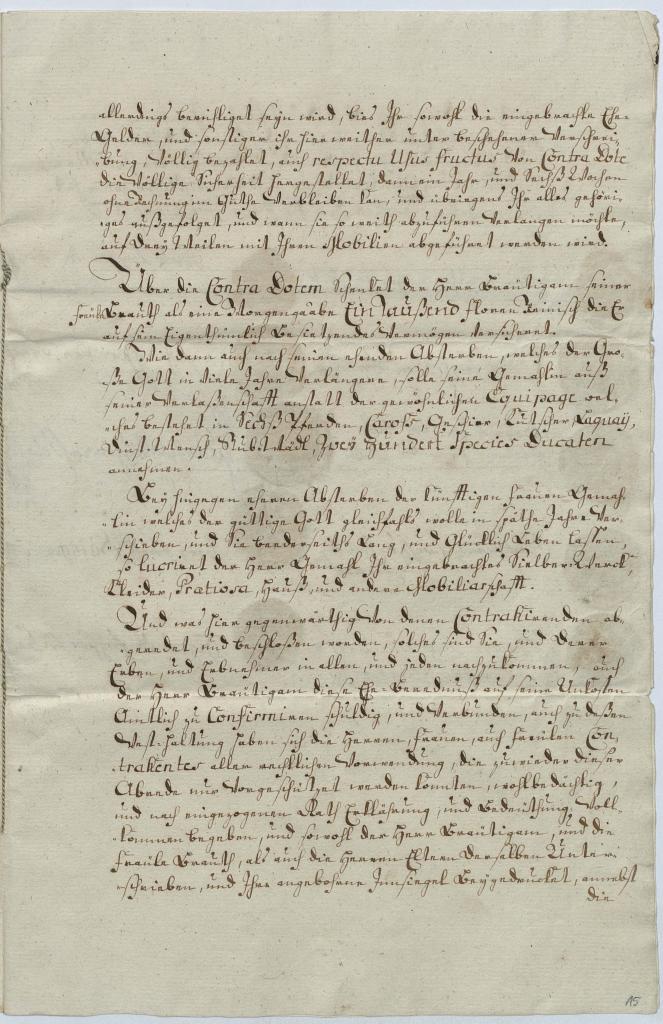 allerdings berichtiget seyn wird, bies Ihr sowohl die eingebrachte Ehe-
Gelder, und sonstiger ihr hierweither unter beschehener Verschrei-
bung, Völlig bezahlet, auch respectu Usus fructus von Contra Dote
die Völlige Sicherheit hergestellet, dann ein Jahr, und Sechß Wochen
ohne Rechnung im Guthe Verbleiben kan, und übriegens Ihr alles gehöri-
ges außgefolget, und wann sie so weith abzuführen Verlangen möchte,
auf drey Meilen mit Ihren Mobilien abgeführet werden wird.
Über die Contra Dotem Schenket der Herr Bräutigam seiner
Freüle Brauth als eine Morgengaabe Ein Taußend floren Reinisch die Er
auf sein Eigenthümlich Besietzendes Vermögen versicheret.
Wie dann auch nach seinen ehenden Absterben, welches der Gro-
ße Gott in Viele Jahre Verlängere, solle seine Gemahlin auß
seiner Verlaßenschafft anstatt der gewöhnlichen Equipage wel-
ches bestehet in Sechß Pferden, Caross, Geschier, Kutscher, Laquaÿ,
Dienst-Mensch, Zweÿ Hundert Species Ducaten
annehmen.
Beÿ hingegen eheren Absterben der künfftigen Frauen Gemah-
lin welches der güttige Gott gleichfahls wolle in späthe Jahre Ver-
schieben, und Sie beederseiths Lang, und Glücklich Leben Lassen,
so lucriret der Herr Gemahl Ihr eingebrachtes Sielber-Werck,
Kleider, Pratiosa, Hauß- und andere Mobiliarschafft.
Und was hier gegenwärthig Von denen Contrahirenden ab-
geredet, und beschloßen worden, solches sind Sie, und Derer
Erben, und Erbnehmer in allen, und jeden nachzukommen, auch
der Herr Bräutigam diese Ehe-Berednuß auf seine Unkosten
Ambtlich zu Confirmiren schuldig, und Verbunden, auch zu deßen
Vest-Haltung haben sich die Herren, Frauen, auch Freülen Con-
trahentes aller rechtlichen Vorwendung, die zuwieder dieser
Abrede nur Vorgeschützet werden könnten, wohlbedächtig,
und nach eingezogenen Rath Erklährung, und Bedeüthung Voll-
kommen begeben, und sowohl der Herr Bräutigam, und die
Freüle Brauth, als auch die Herren Eltern derselben Unter-
schrieben, und Ihr angebohrne Innsiegel Beygedrücket, annebst
die
15